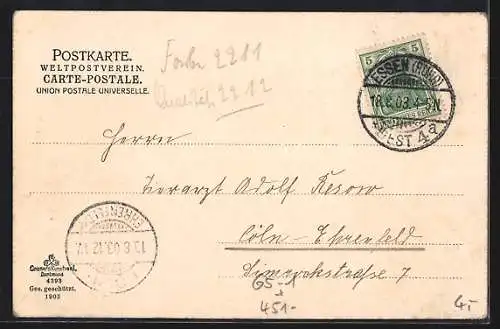 POSTKARTE.
WELTPOSTVEREIN.
CARTE-POSTALE.
UNION POSTALE UNIVERSELLE.
2211
2212
5 5
ESSEN (RUHR)
18.6.03. 4-5N.
4a
Herrn
Tierarzt Adolf Kesow
Cöln-Ehrenfeld
Bismarckstraße 7
EHRENFELD
19.6.03.
Dortmund
4393
Ges. geschützt.
1903
G5-1
451.-
4,-